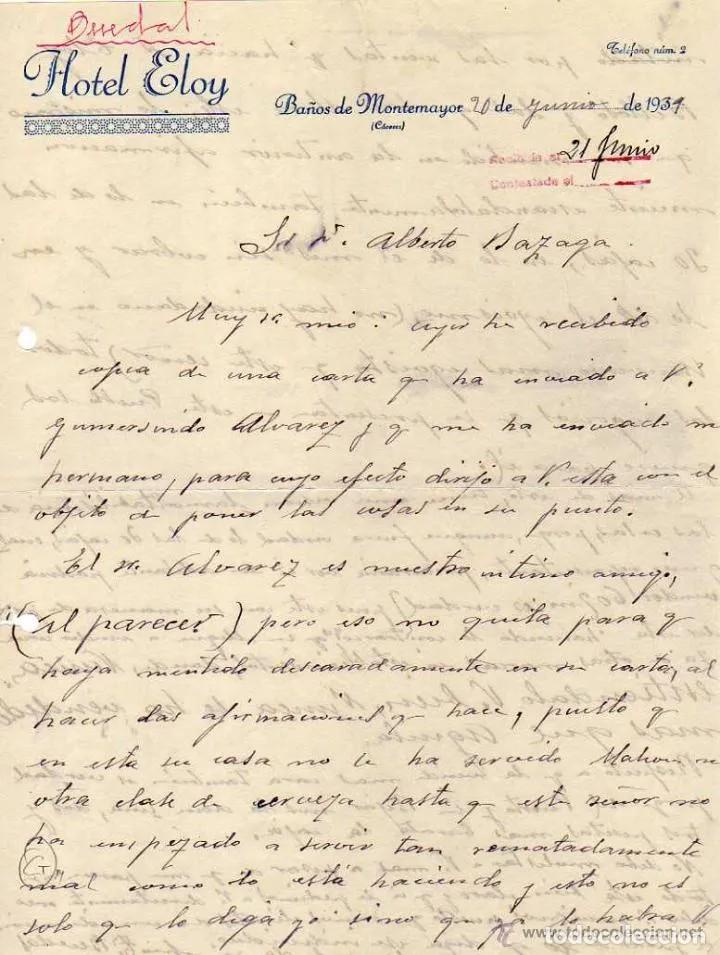 Desedal
Hotel Eloy
Teléfono núm. 2
Baños de Montemayor 20 de junio de 1934
(Cáceres)
Recibida el 21 Junio
Contestada el
Sr Dn. Alberto Bazaga.
Muy sr. mio: ayer he recibido
copia de una carta q ha enviado a V.
Gumersindo Alvarez y q me ha enviado mi
hermano, para cuyo efecto dirijo a V. esta con el
objeto de poner las cosas en su punto.
El sr. Alvarez es nuestro intimo amigo,
(al parecer) pero eso no quita para q
haya mentido descaradamente en su carta, al
hacer las afirmaciones q hace, puesto q
en esta su casa no se ha servido Mahou ni
otra clase de cerveza hasta q este señor no
ha empezado a servir tan rematadamente
mal como lo está haciendo y esto no es
solo que lo diga yo sino que ya lo habrá V.
todocoleccion
www.todocoleccion.net